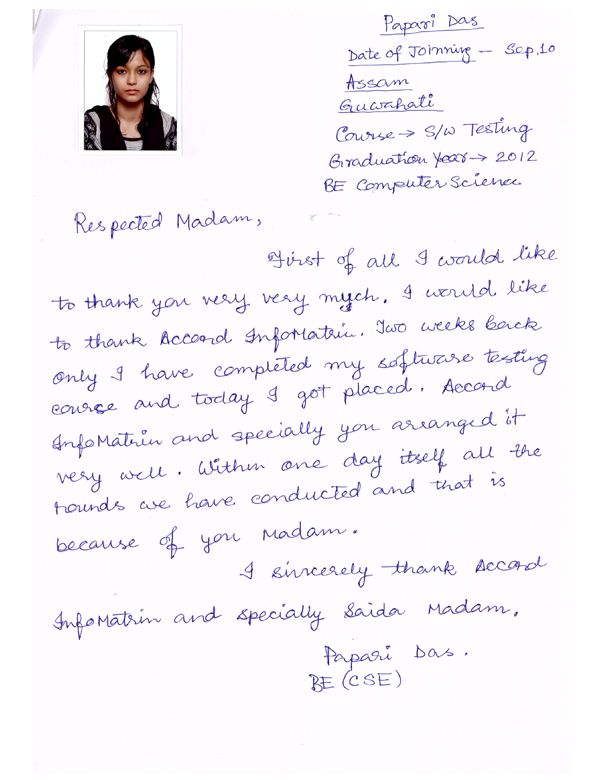 Papari Das
Date of Joinning – Sep.10
Assam
Guwahati
Course → S/W Testing
Graduation Year → 2012
BE Computer Science
Respected Madam,
First of all I would like
to thank you very very much. I would like
to thank Accord InfoMatrin. Two weeks back
only I have completed my software testing
course and today I got placed. Accord
InfoMatrin and specially you arranged it
very well. Within one day itself all the
rounds we have conducted and that is
because of you Madam.
I sincerely thank Accord
InfoMatrin and specially Saida Madam.
Papari Das.
BE (CSE)